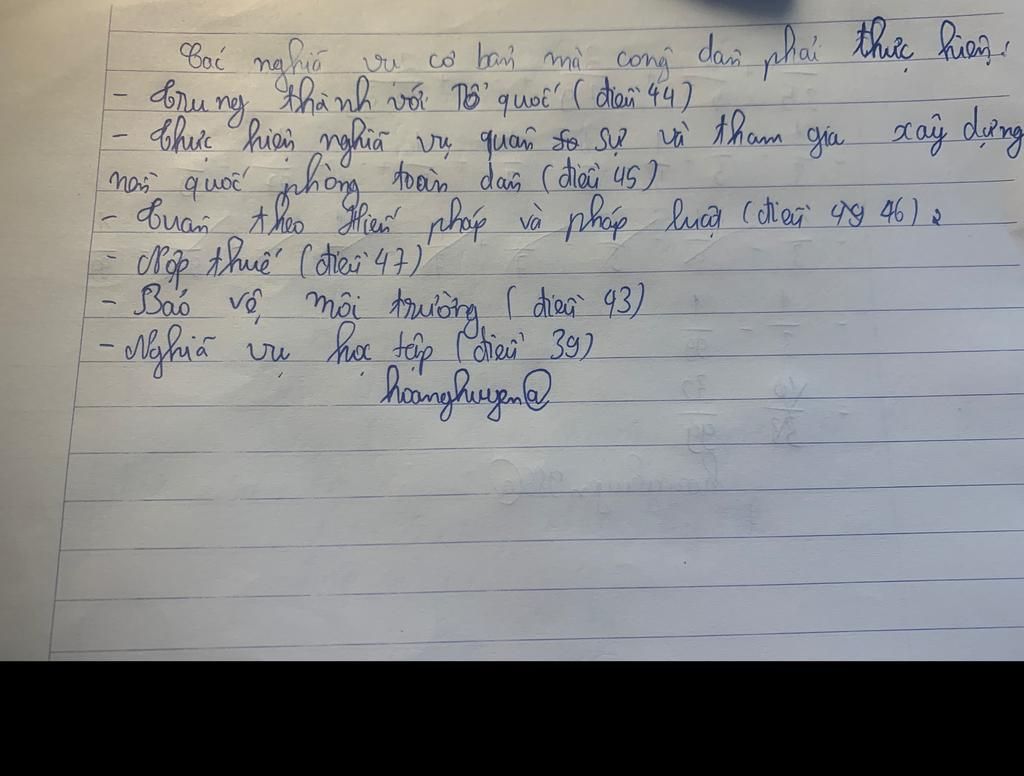 Các nghĩa vụ cơ bản mà công dân phải thực hiện:
- Trung thành với Tổ quốc (điều 44)
- Thực hiện nghĩa vụ quân sự và tham gia xây dựng
nền quốc phòng toàn dân (điều 45)
- Tuân theo Hiến pháp và pháp luật (điều 46).
- Nộp thuế (điều 47)
- Bảo vệ môi trường (điều 43)
- Nghĩa vụ học tập (điều 39)
hoanghuyen@